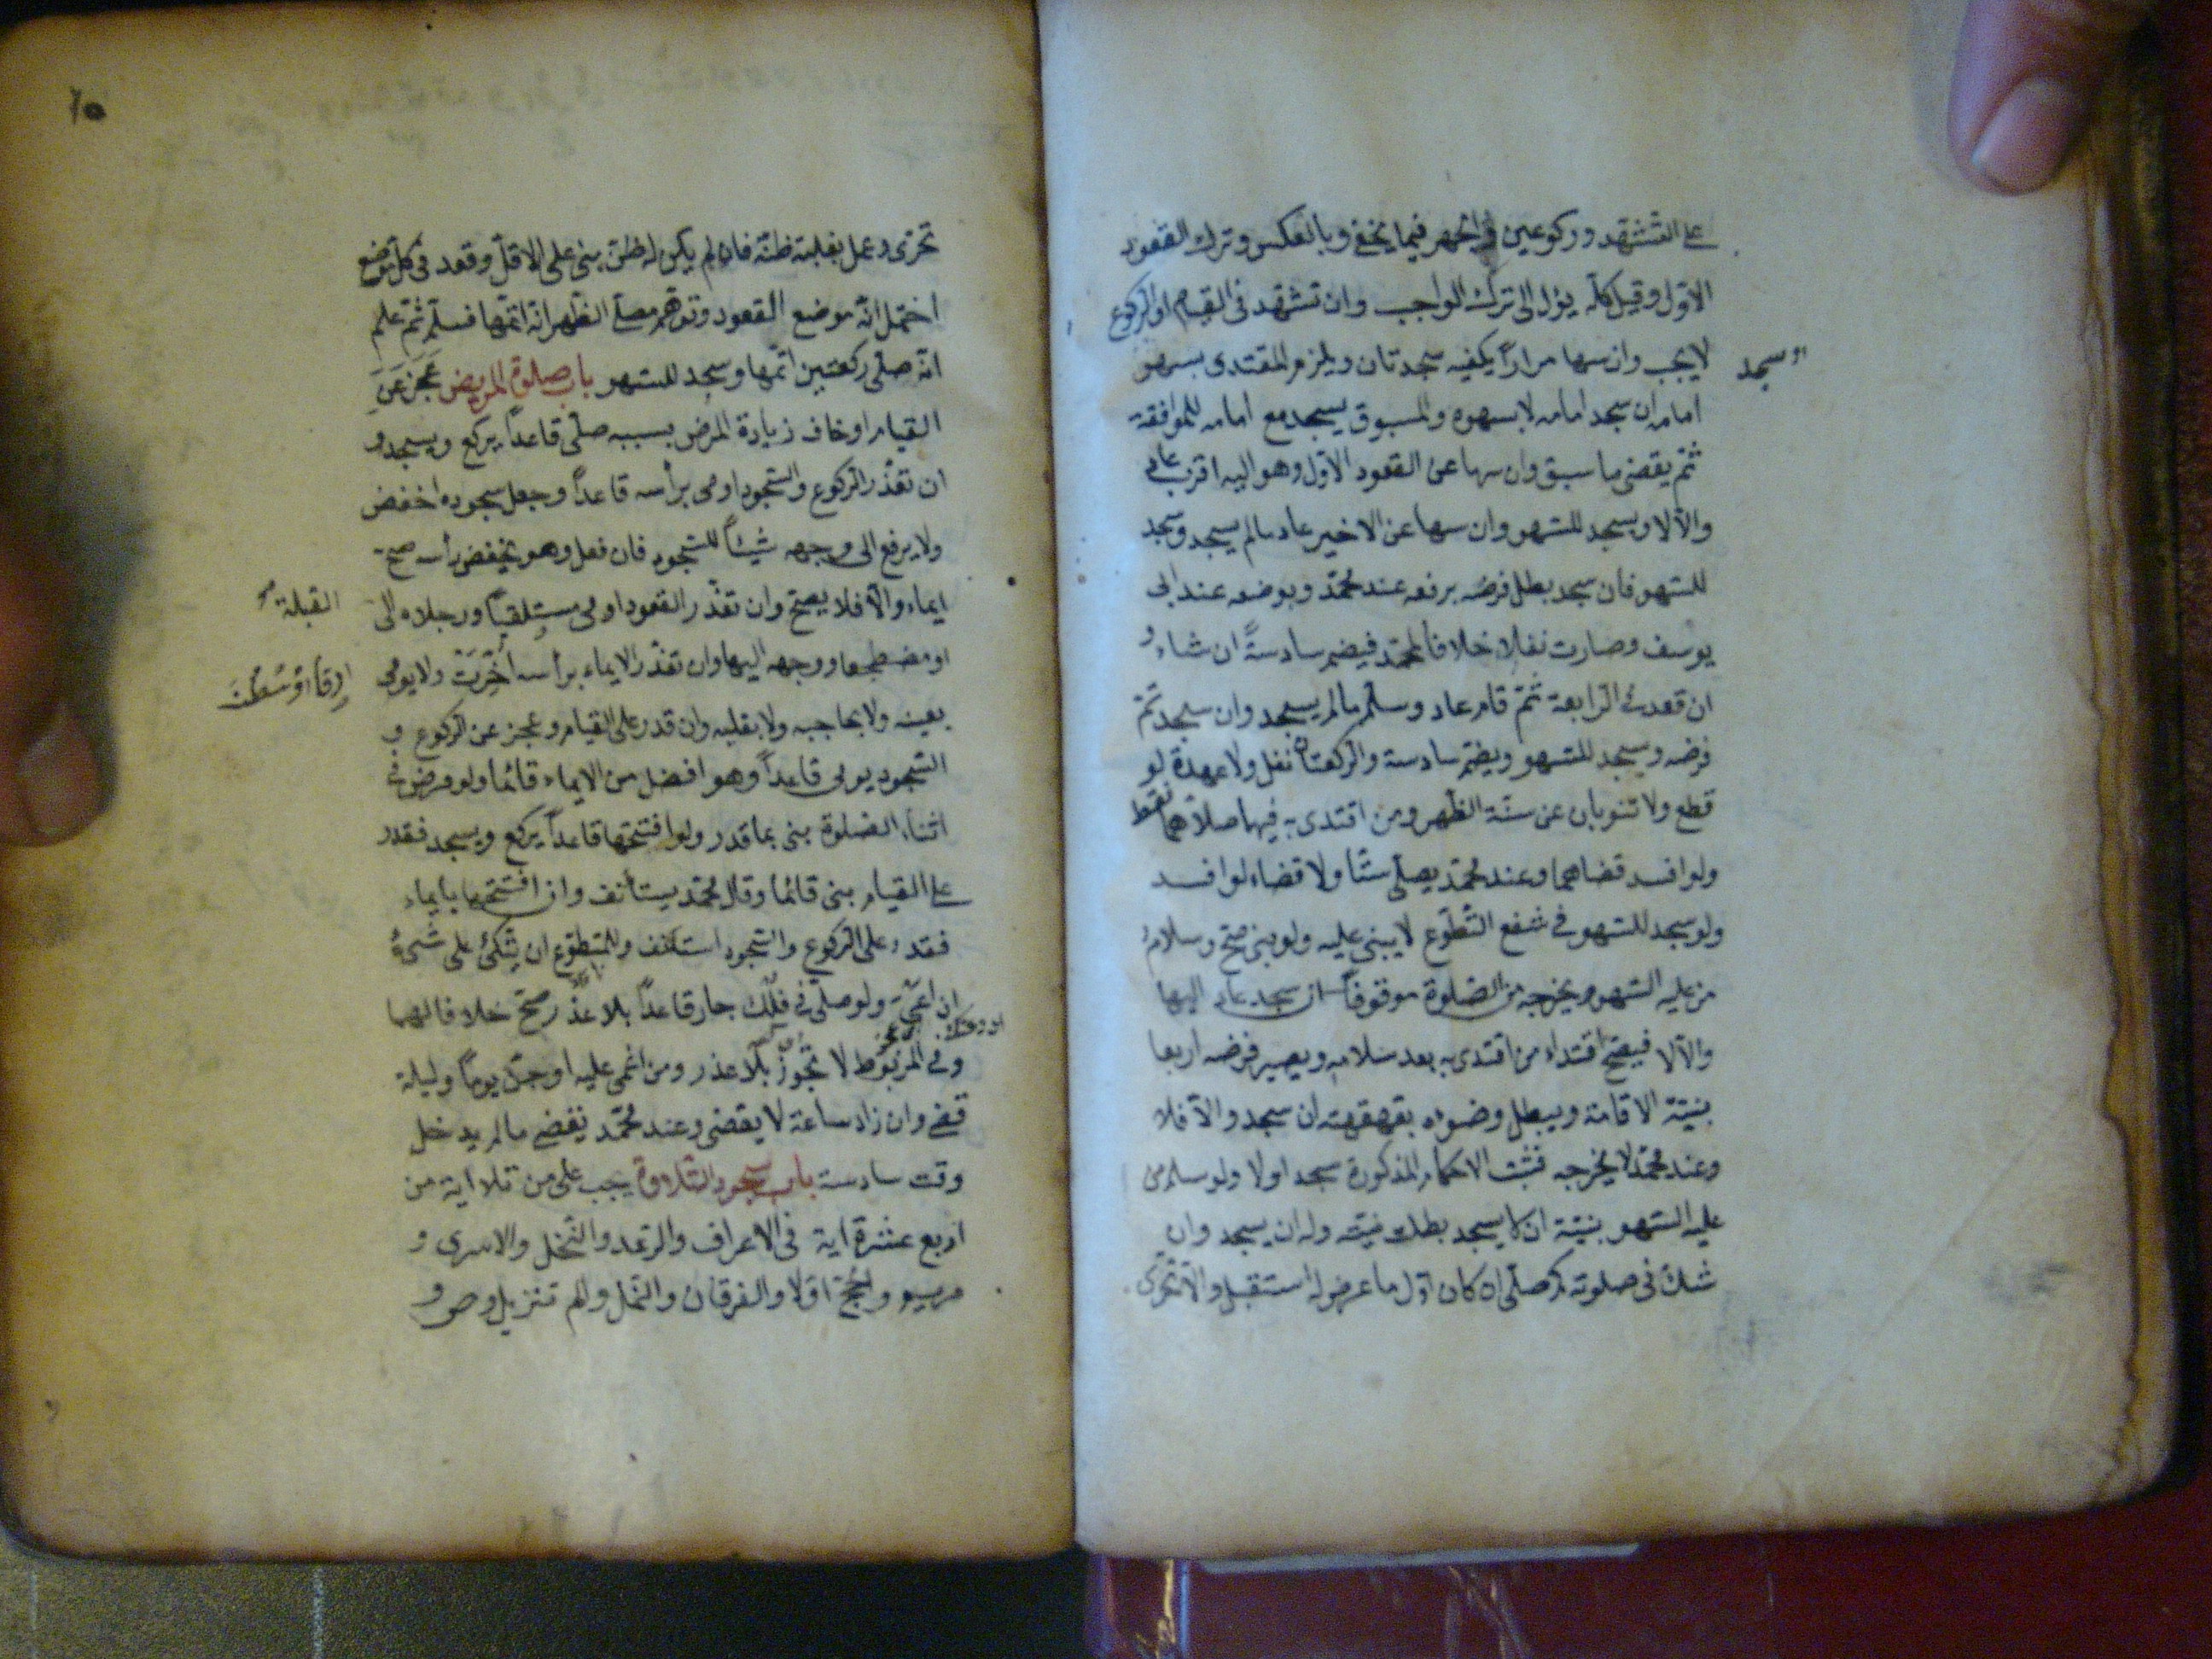 على التشهد وركوعين والجهر فيما يخفى وبالعكس وترك القعود
الاول وقيل كله يؤل الى ترك الواجب وان تشهد فى القيام او الركوع
او سجد
لا يجب وان سها مرارًا يكفيه سجدتان ويلزم المقتدى بسهو
امامه ان سجد امامه لا بسهوه والمسبوق يسجد مع امامه للموافقة
ثم يقضى ما سبق وان سها عن القعود الاول وهو اليه اقرب عاد
والا لا ويسجد للسهو وان سها عن الاخير عاد ما لم يسجد وسجد
للسهو فان سجد بطل فرضه برفعه عند محمد وبوضعه عند ابى
يوسف وصارت نفلا خلافا لمحمد فيضم سادسةً ان شاء و
ان قعد فى الرابعة ثم قام عاد وسلم ما لم يسجد وان سجد تم
فرضه ويسجد للسهو ويضم سادسة والركعتان نفل ولا عهدة لو
قطع ولا تنوبان عن سنة الظهر ومن اقتدى به فيها صلاهما فقط
ولو افسد قضاهما وعند محمد يصلى ستا ولا قضاء لو افسد
ولو سجد للسهو فى شفع التطوع لا يبنى عليه ولو بنى صح وسلام
من عليه السهو يخرجه من الصلوة موقوفًا ان سجد عاد اليها
والا لا فيصح اقتداء من اقتدى به بعد سلامه ويصير فرضه اربعا
بنية الاقامة ويبطل وضوءه بقهقهته ان سجد والا فلا
وعند محمد لا يخرجه فثبت الاحكام المذكورة سجد اولا ولو سلم من
عليه السهو بنية ان لا يسجد بطلت نيته وله ان يسجد وان
شك فى صلوته كم صلى ان كان اول ما عرض له استقبل والا تحرى
تحرى وعمل بغلبة ظنه فان لم يكن له ظن بنى على الاقل وقعد فى كل موضع
احتمل انه موضع القعود وتوهم مصلى الظهر انه اتمها فسلم ثم علم
انه صلى ركعتين اتمها وسجد للسهو باب صلوة المريض عَجَزَ عَنِ
القيام او خاف زيادة المرض بسببه صلى قاعدًا يركع ويسجد و
ان تعذر الركوع والسجود اومى برأسه قاعدًا وجعل سجوده اخفض
ولا يرفع الى وجهه شيئًا للسجود فان فعل وهو يخفض رأسه صح
ايماء والا فلا يصح وان تعذر القعود اومى مستلقيًا ورجلاه الى
القبلة
او مضطجعا ووجهه اليها وان تعذر الايماء برأسه أُخِّرَتْ ولا يومى
بعينه ولا بحاجبه ولا بقلبه وان قدر على القيام وعجز عن الركوع و
السجود يومى قاعدًا وهو افضل من الايماء قائما ولو مرض فى
اثناء الصلوة بنى بما قدر ولو افتتحها قاعدًا يركع ويسجد فقدر
على القيام بنى قائما وقال محمد يستأنف وان افتتحها بايماء
فقدر على الركوع والسجود استأنف وللمتطوع ان يتكئ على شئ
ان اعيى ولو صلى فى فلك جار قاعدًا بلا عذر صح خلافا لهما
وفى المربوط لا تجوز بلا عذر ومن اغمى عليه او جن يومًا وليلة
قضى وان زاد ساعة لا يقضى وعند محمد يقضى ما لم يدخل
وقت سادسة باب سجود التلاوة يجب على من تلا اية من
اربع عشرة اية فى الاعراف والرعد والنحل والاسرى و
مريم والحج اولا والفرقان والنمل والم تنزيل وص و